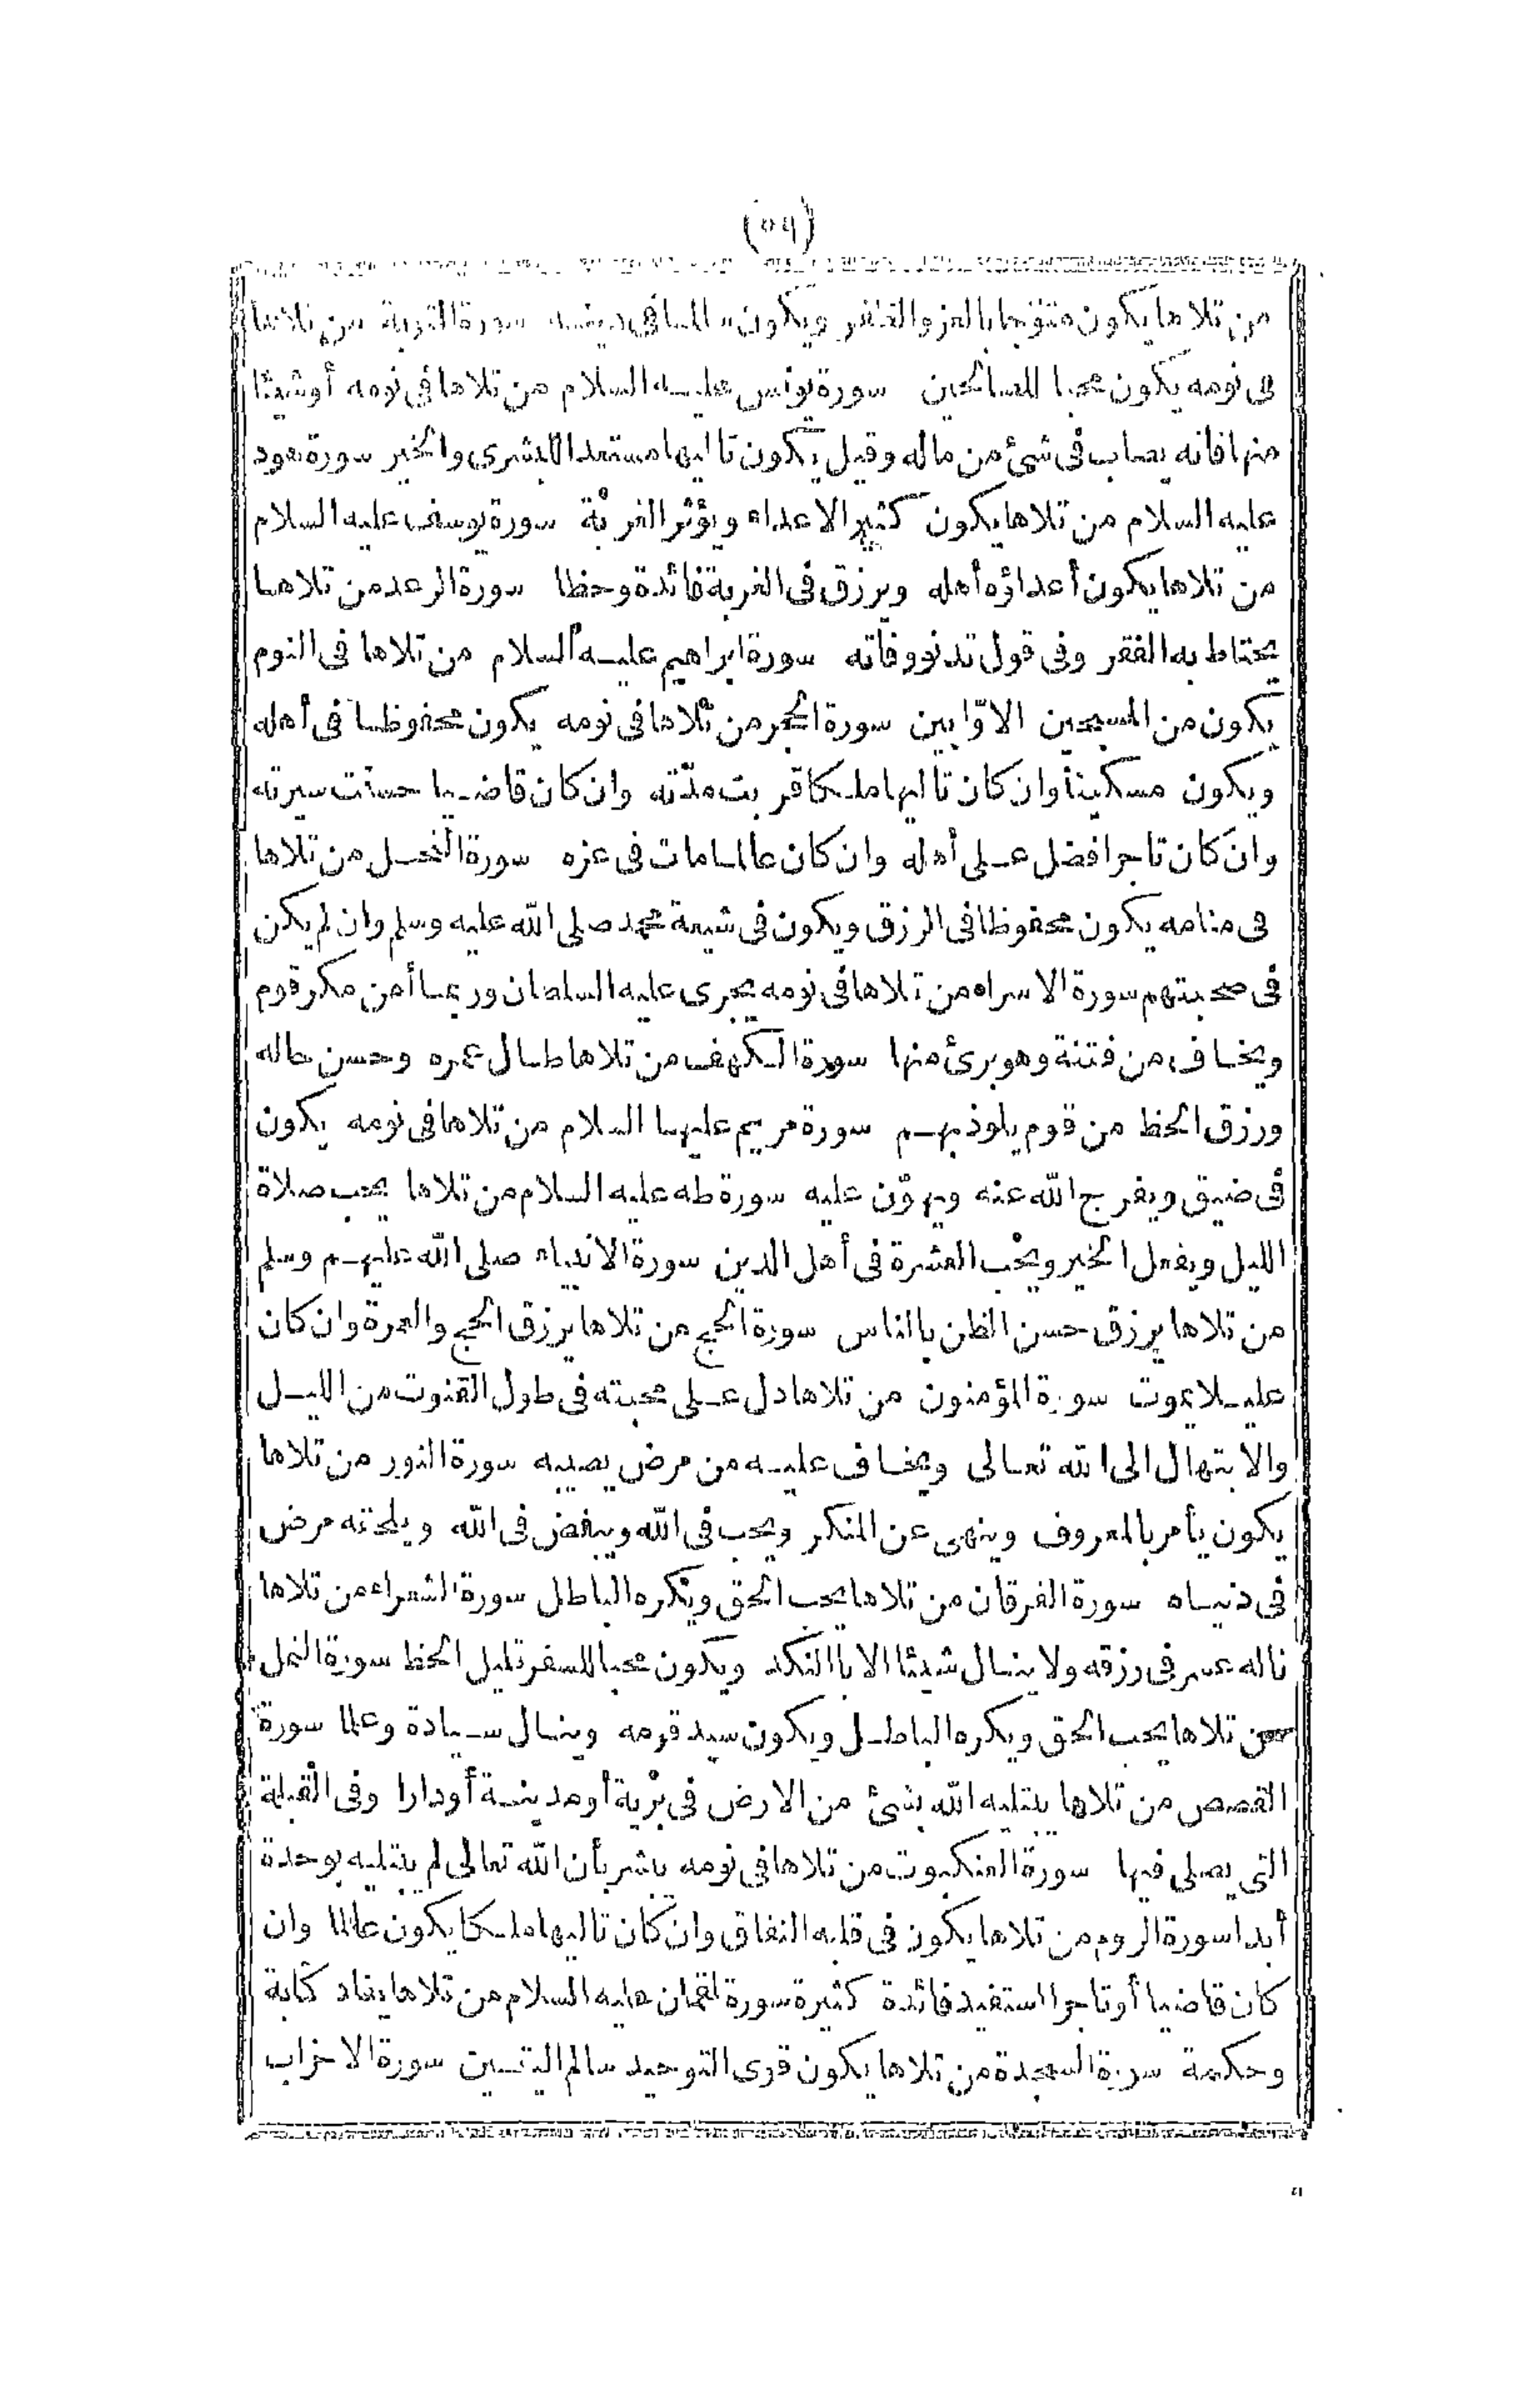 (٥٩)
من تلاها يكون متوّجا بالعز والظفر ويكون سالما فى دينه سورة التوبة من تلاها
فى نومه يكون محبا للصالحين سورة يونس عليه السلام من تلاها فى نومه أو شيئا
منها فانه يصاب فى شئ من ماله وقيل يكون تاليها مستعدا للبشرى والخير سورة هود
عليه السلام من تلاها يكون كثير الاعداء ويؤثر الغربة سورة يوسف عليه السلام
من تلاها يكون أعداؤه أهله ويرزق فى الغربة فائدة وحظا سورة الرعد من تلاها
يحتاط به الفقر وفى قول تدنو وفاته سورة ابراهيم عليه السلام من تلاها فى النوم
يكون من المسبحين الاوّابين سورة الحجر من تلاها فى نومه يكون محفوظا فى أهله
ويكون مسكينا وان كان تاليها ملكا قربت مدّته وان كان قاضيا حسنت سيرته
وان كان تاجرا فضل على أهله وان كان عالما مات فى عزه سورة النحل من تلاها
فى منامه يكون محفوظا فى الرزق ويكون فى شيعة محمد صلى الله عليه وسلم وان لم يكن
فى صحبتهم سورة الاسراء من تلاها فى نومه يجرى عليه السلطان وربما أمن مكر قوم
ويخاف من فتنة وهو برئ منها سورة الكهف من تلاها طال عمره وحسن حاله
ورزق الحظ من قوم يلوذ بهم سورة مريم عليها السلام من تلاها فى نومه يكون
فى ضيق ويفرج الله عنه ويهوّن عليه سورة طه عليه السلام من تلاها يحب صلاة
الليل ويفعل الخير ويحب العشرة فى أهل الدين سورة الانبياء صلى الله عليهم وسلم
من تلاها يرزق حسن الظن بالناس سورة الحج من تلاها يرزق الحج والعمرة وان كان
عليلا يموت سورة المؤمنون من تلاها دل على محبته فى طول القنوت من الليل
والابتهال الى الله تعالى ويخاف عليه من مرض يصيبه سورة النور من تلاها
يكون يأمر بالمعروف وينهى عن المنكر ويحب فى الله ويبغض فى الله ويلحقه مرض
فى دنياه سورة الفرقان من تلاها يحب الحق ويكره الباطل سورة الشعراء من تلاها
ناله عسر فى رزقه ولا ينال شيئا الا بالنكد ويكون محبا للسفر قليل الحظ سورة النمل
من تلاها يحب الحق ويكره الباطل ويكون سيد قومه وينال سيادة وعلما سورة
القصص من تلاها يبتليه الله بشئ من الارض فى برّية أو مدينة أو دارا وفى القبلة
التى يصلى فيها سورة العنكبوت من تلاها فى نومه بشر بأن الله تعالى لم يبتليه بوحدة
أبدا سورة الروم من تلاها يكون فى قلبه النفاق وان كان تاليها ملكا يكون عالما وان
كان قاضيا أو تاجرا استفيد فائدة كثيرة سورة لقمان عليه السلام من تلاها يفاد كتابة
وحكمة سورة السجدة من تلاها يكون قوى التوحيد سالم اليقين سورة الاحزاب